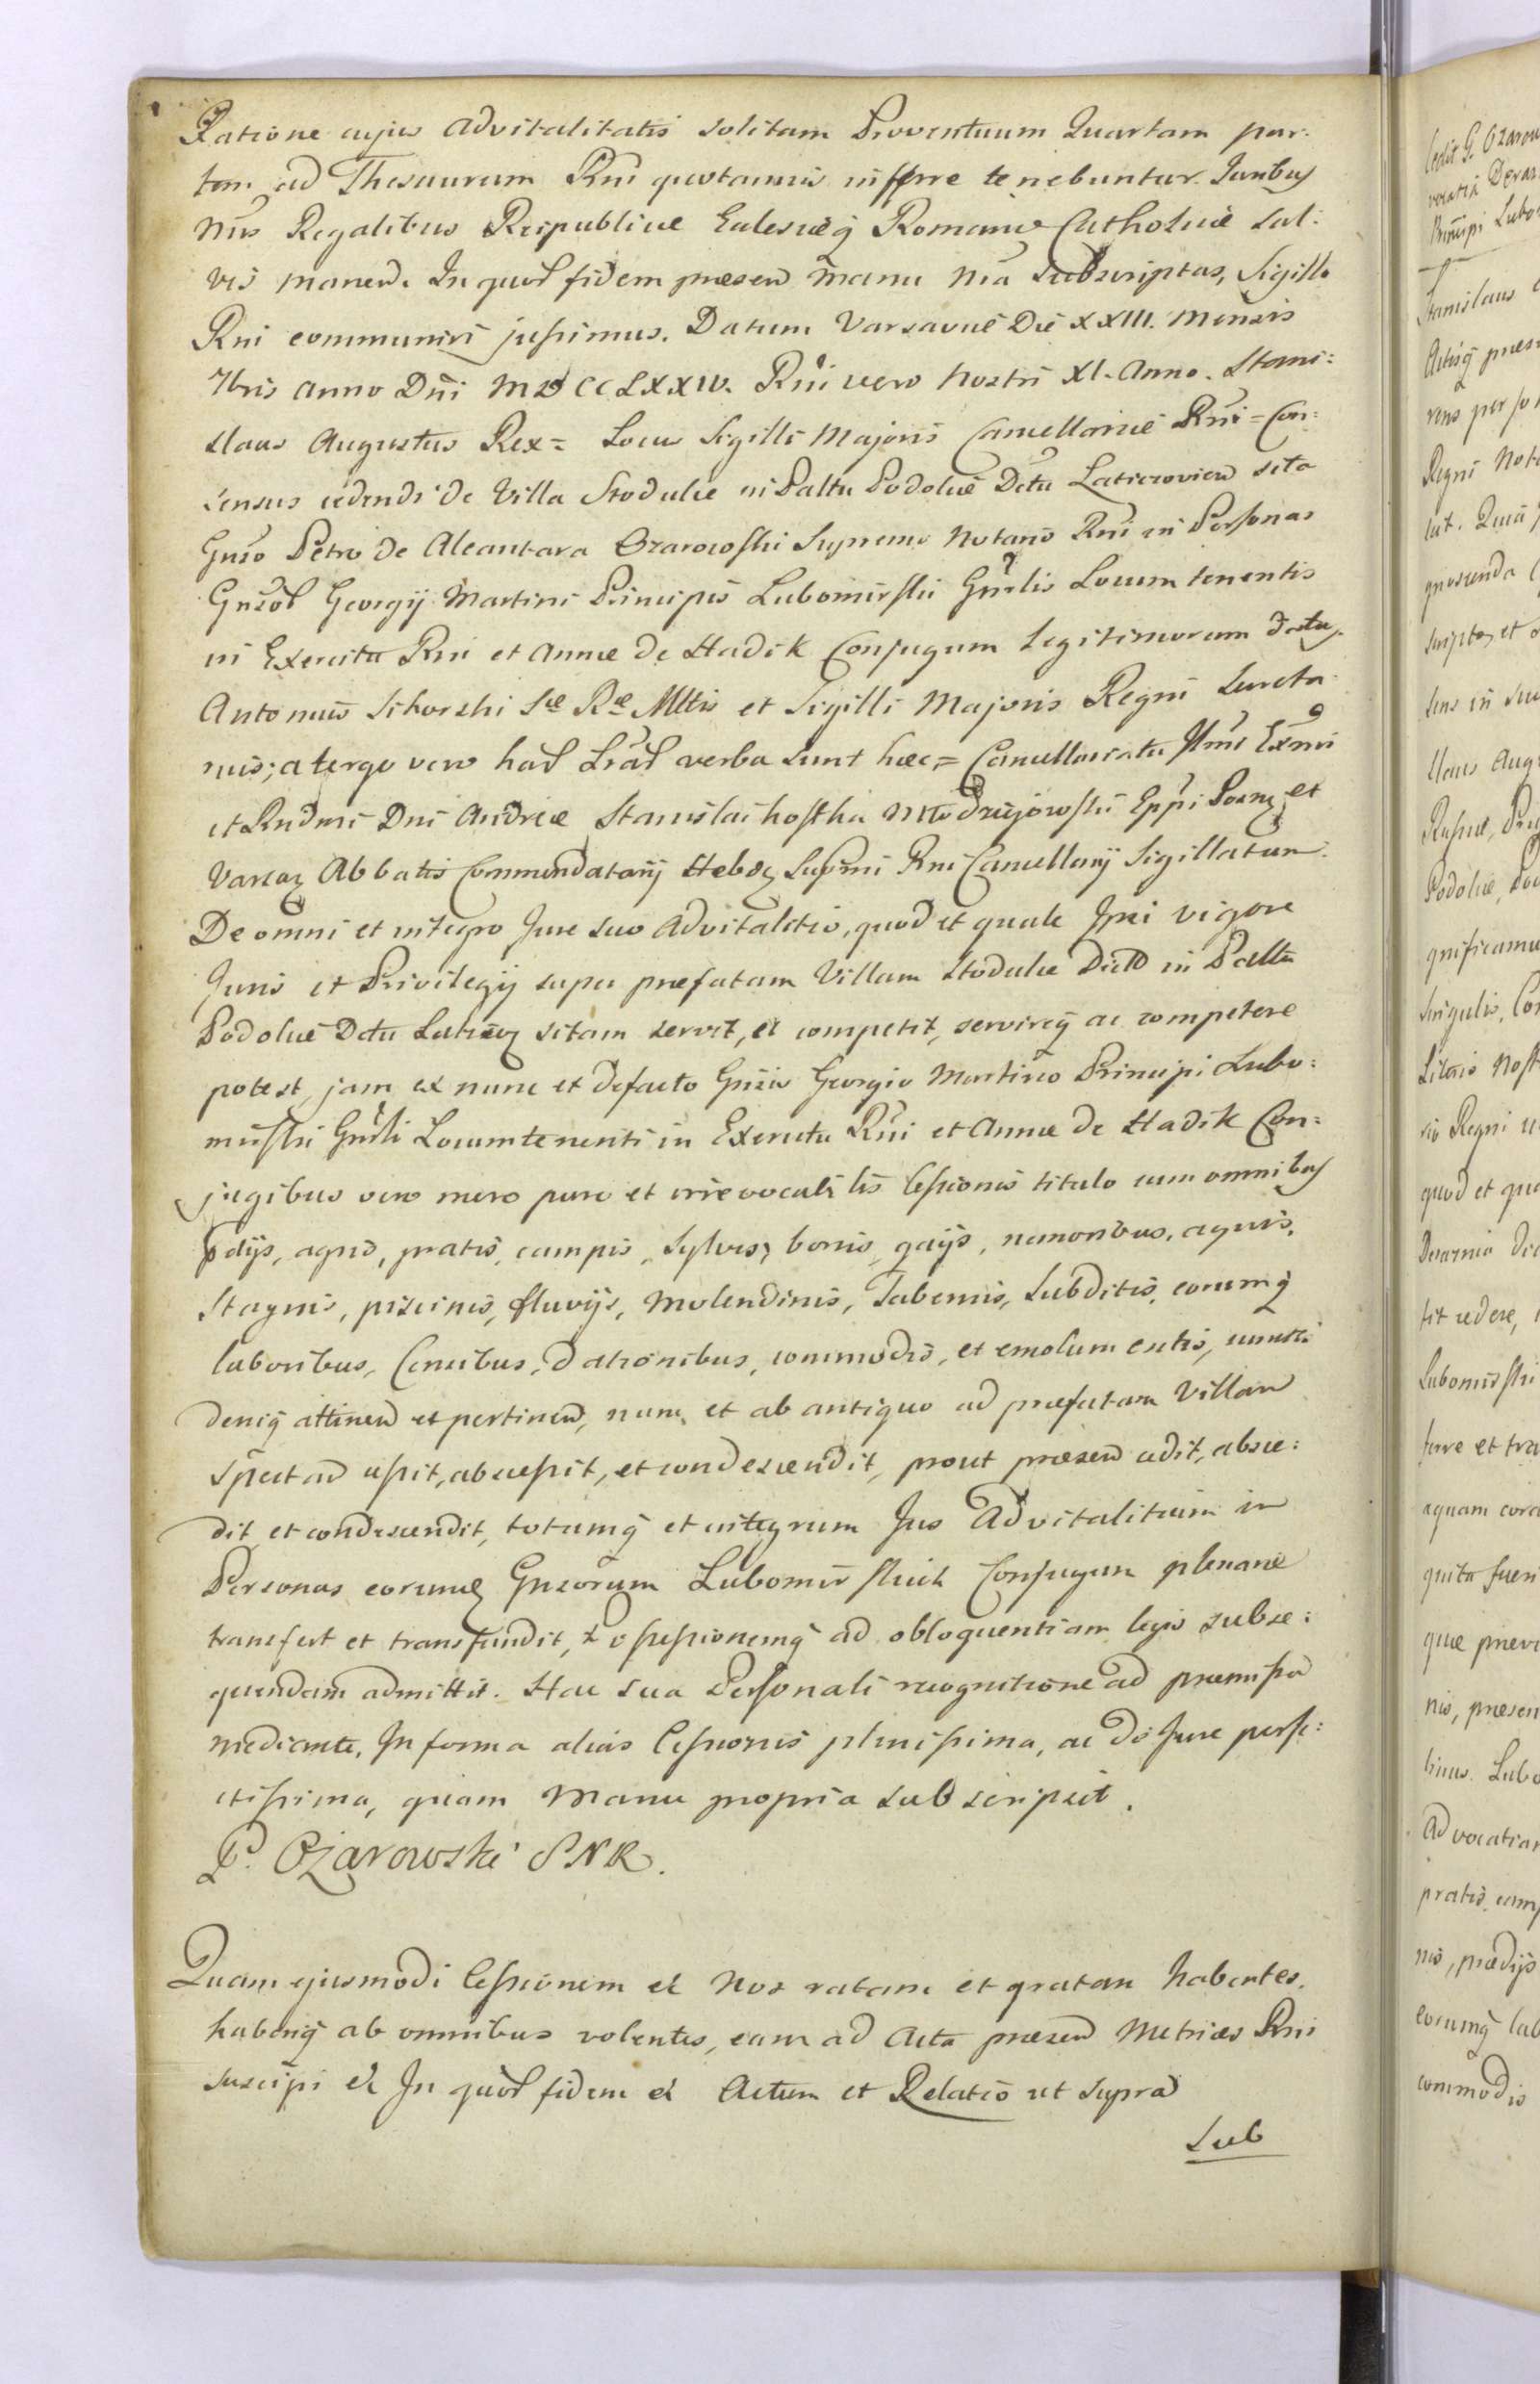 Ratione cujus advitalitatis solitam Proventuum Quartam par:
tem ad Thesaurum Rni quotannis inferre tenebuntur. Juribus
Nris Regalibus Reipublicæ Eccles̄ieq̄ Romanæ Catholicæ sal:
vis manen̄. In quor̄ fidem præsen̄ manu Nrā subscriptas, Sigillo
Rni communiri jussimus. Datum Varsaviæ Die XXIII. Mensis
7bris Anno Dn̄i MDCCLXXIV. Rn̄i vero Nostri XI. Anno. Stani:
slaus Augustus Rex = Locus Sigilli Majoris Cancellariæ Rn̄i = Con:
sensus cedendi de Villa Stodulce in Paltu Podoliæ Dctu Laticzovien̄ sita
Gnso Petro de Alcantara Ozarowski Supremo Notario Rn̄i in Personas
Gnsor̄ Georgij Martini Principis Lubomirskii Gn̄rlis Locum tenentis
in Exercitu Rni et Annæ de Hadik Conjugum legitimorum datus.
Antonius Sikorski Sæ Ræ Mttis et Sigilli Majoris Regni Secreta:
rius; a tergo vero har̄ Lrar̄ verba sunt hæc = Cancellariatu Jllmi Exmi
et Rndmi Dni Andreæ Stanislai Kostka Młodziejowskii Eppi Posnₙ et
Varsaₙ Abbatis Commendatarij Hebdₙ Suprmi Rni Cancellarij Sigillatum.
De omni et integro Jure suo advitalitio, quod et quale Jpsi vigore
Juris et Privilegij super præfatam Villam Stodulce Dicto in Paltu
Podoliæ Dctu Laticzₙ sitam servit, et competit, servireq̄ ac competere
potest, jam ex nunc et defacto Gnsis Georgio Martino Principi Lubo:
mirskii Gn̄rli Locumtenenti in Exercitu Rn̄i et Annæ de Hadik Con:
jugibus vero mero puro et irrevocabilis Cessionis titulo cum omnibus
pdijs, agris, pratis, campis, sylvis, borris, gajis, nemoribus, aquis,
Stagnis, piscinis, fluvijs, Molendinis, Tabernis, Subditis, eorumq̄
laboribus, Censibus, dationibus, commodis, et emolumentis, cunctis
deniq̄ attinen̄ et pertinen̄, nunc et ab antiquo ad præfatam Villam
spectan̄ cessit, abscessit, et condescendit, prout præsen̄ cedit, absce:
dit et condescendit, totumq̄ et integrum Jus Advitalitium in
Personas eorund̄ Gnsorum Lubomirskich Conjugum plenarie
transfert et transfundit, Possessionemq̄ ad obloquentiam legis subse:
quendam admittit. Hac sua Personali recognitione ad præmissa
mediante, In forma alias Cessionis plenissima, ac de Jure perfe:
ctissima, quam Manu propria subscripsit.
P. Ożarowski PNR.
Quam ejusmodi Cessionem et Nos ratam et gratam habentes,
haberiq̄ ab omnibus volentes, eam ad Acta præsen̄ Metrices Rni
suscipi et In quor̄ fidem et Actum et Relatio ut supra
Sub